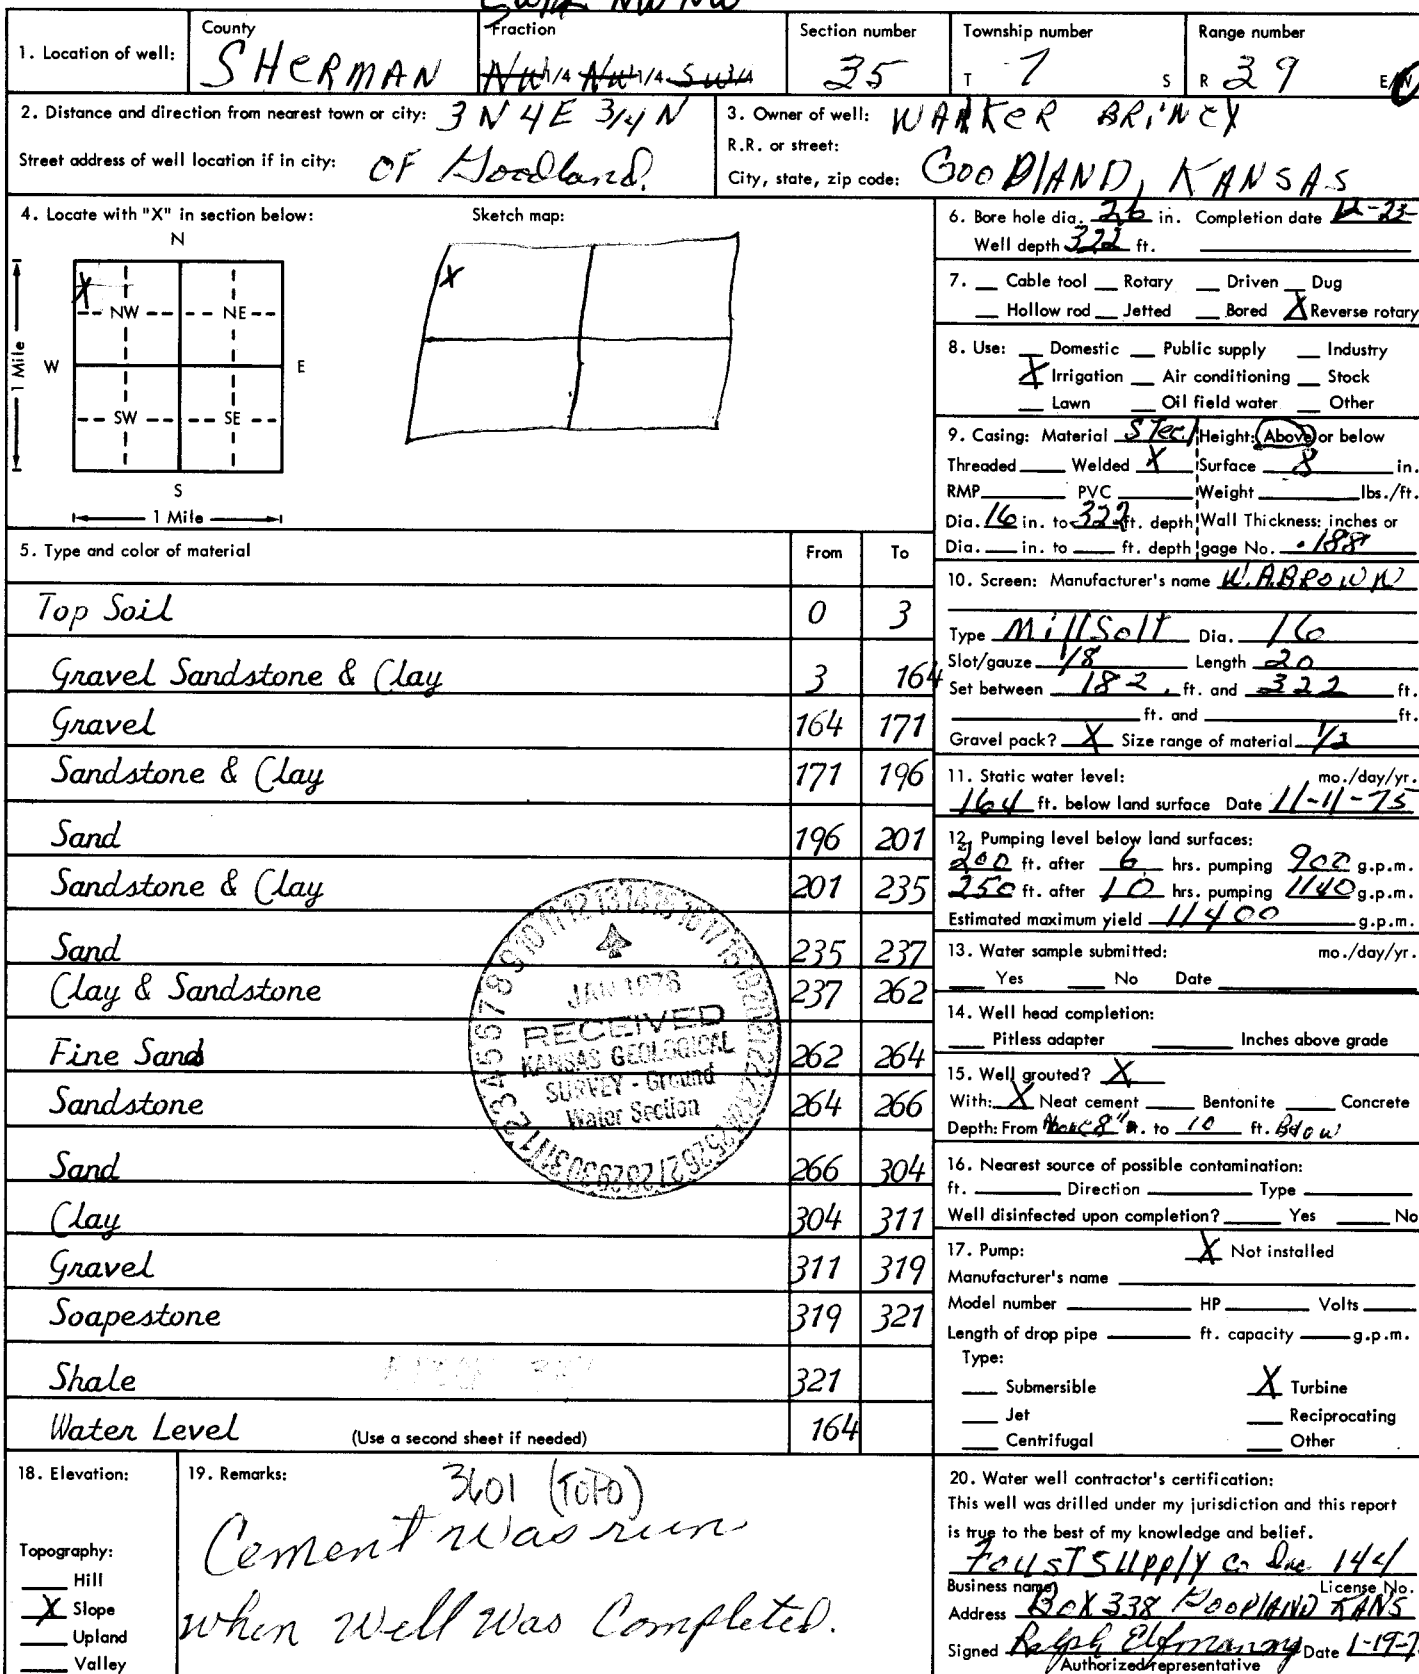 NW NW
1. Location of well:
County
SHERMAN
Fraction
NW 1/4 NW 1/4 SW 1/4
Section number
35
Township number
T 7 S
Range number
R 39 E/W
2. Distance and direction from nearest town or city: 3 N 4E 3/4 N
Street address of well location if in city: OF Goodland.
3. Owner of well: WARKER BRINEY
R.R. or street:
City, state, zip code: GOODLAND, KANSAS
4. Locate with "X" in section below:
Sketch map:
N
X
X
NW NE
W E
1 Mile
SW SE
S
1 Mile
5. Type and color of material From To
Top Soil 0 3
Gravel Sandstone & Clay 3 164
Gravel 164 171
Sandstone & Clay 171 196
Sand 196 201
Sandstone & Clay 201 235
Sand 235 237
Clay & Sandstone 237 262
Fine Sand 262 264
Sandstone 264 266
Sand 266 304
Clay 304 311
Gravel 311 319
Soapestone 319 321
Shale 321
Water Level 164
(Use a second sheet if needed)
JAN 1976
RECEIVED
KANSAS GEOLOGICAL
SURVEY - Ground
Water Section
6. Bore hole dia. 26 in. Completion date 12-23-
Well depth 322 ft.
7. Cable tool Rotary Driven Dug
Hollow rod Jetted Bored X Reverse rotary
8. Use: Domestic Public supply Industry
X Irrigation Air conditioning Stock
Lawn Oil field water Other
9. Casing: Material STeel Height: Above or below
Threaded Welded X Surface 8 in.
RMP PVC Weight lbs./ft.
Dia. 16 in. to 322 ft. depth Wall Thickness: inches or
Dia. in. to ft. depth gage No. .188
10. Screen: Manufacturer's name W.A.BROWN
Type Mill Solt Dia. 16
Slot/gauze 1/8 Length 20
Set between 182 ft. and 322 ft.
ft. and ft.
Gravel pack? X Size range of material 1/2
11. Static water level: mo./day/yr.
164 ft. below land surface Date 11-11-75
12. Pumping level below land surfaces:
200 ft. after 6 hrs. pumping 900 g.p.m.
250 ft. after 10 hrs. pumping 1140 g.p.m.
Estimated maximum yield 11400 g.p.m.
13. Water sample submitted: mo./day/yr.
Yes No Date
14. Well head completion:
Pitless adapter Inches above grade
15. Well grouted? X
With: X Neat cement Bentonite Concrete
Depth: From Above 8" ft. to 10 ft. Below
16. Nearest source of possible contamination:
ft. Direction Type
Well disinfected upon completion? Yes No
17. Pump: X Not installed
Manufacturer's name
Model number HP Volts
Length of drop pipe ft. capacity g.p.m.
Type:
Submersible X Turbine
Jet Reciprocating
Centrifugal Other
18. Elevation:
Topography:
Hill
X Slope
Upland
Valley
19. Remarks: 3601 (TOPO)
Cement was run
when Well Was Completed.
20. Water well contractor's certification:
This well was drilled under my jurisdiction and this report
is true to the best of my knowledge and belief.
FOUST SUPPLY Co Inc 144
Business name License No.
Address BOX 338 GOODLAND KANS
Signed Ralph Date 1-19-7
Authorized representative